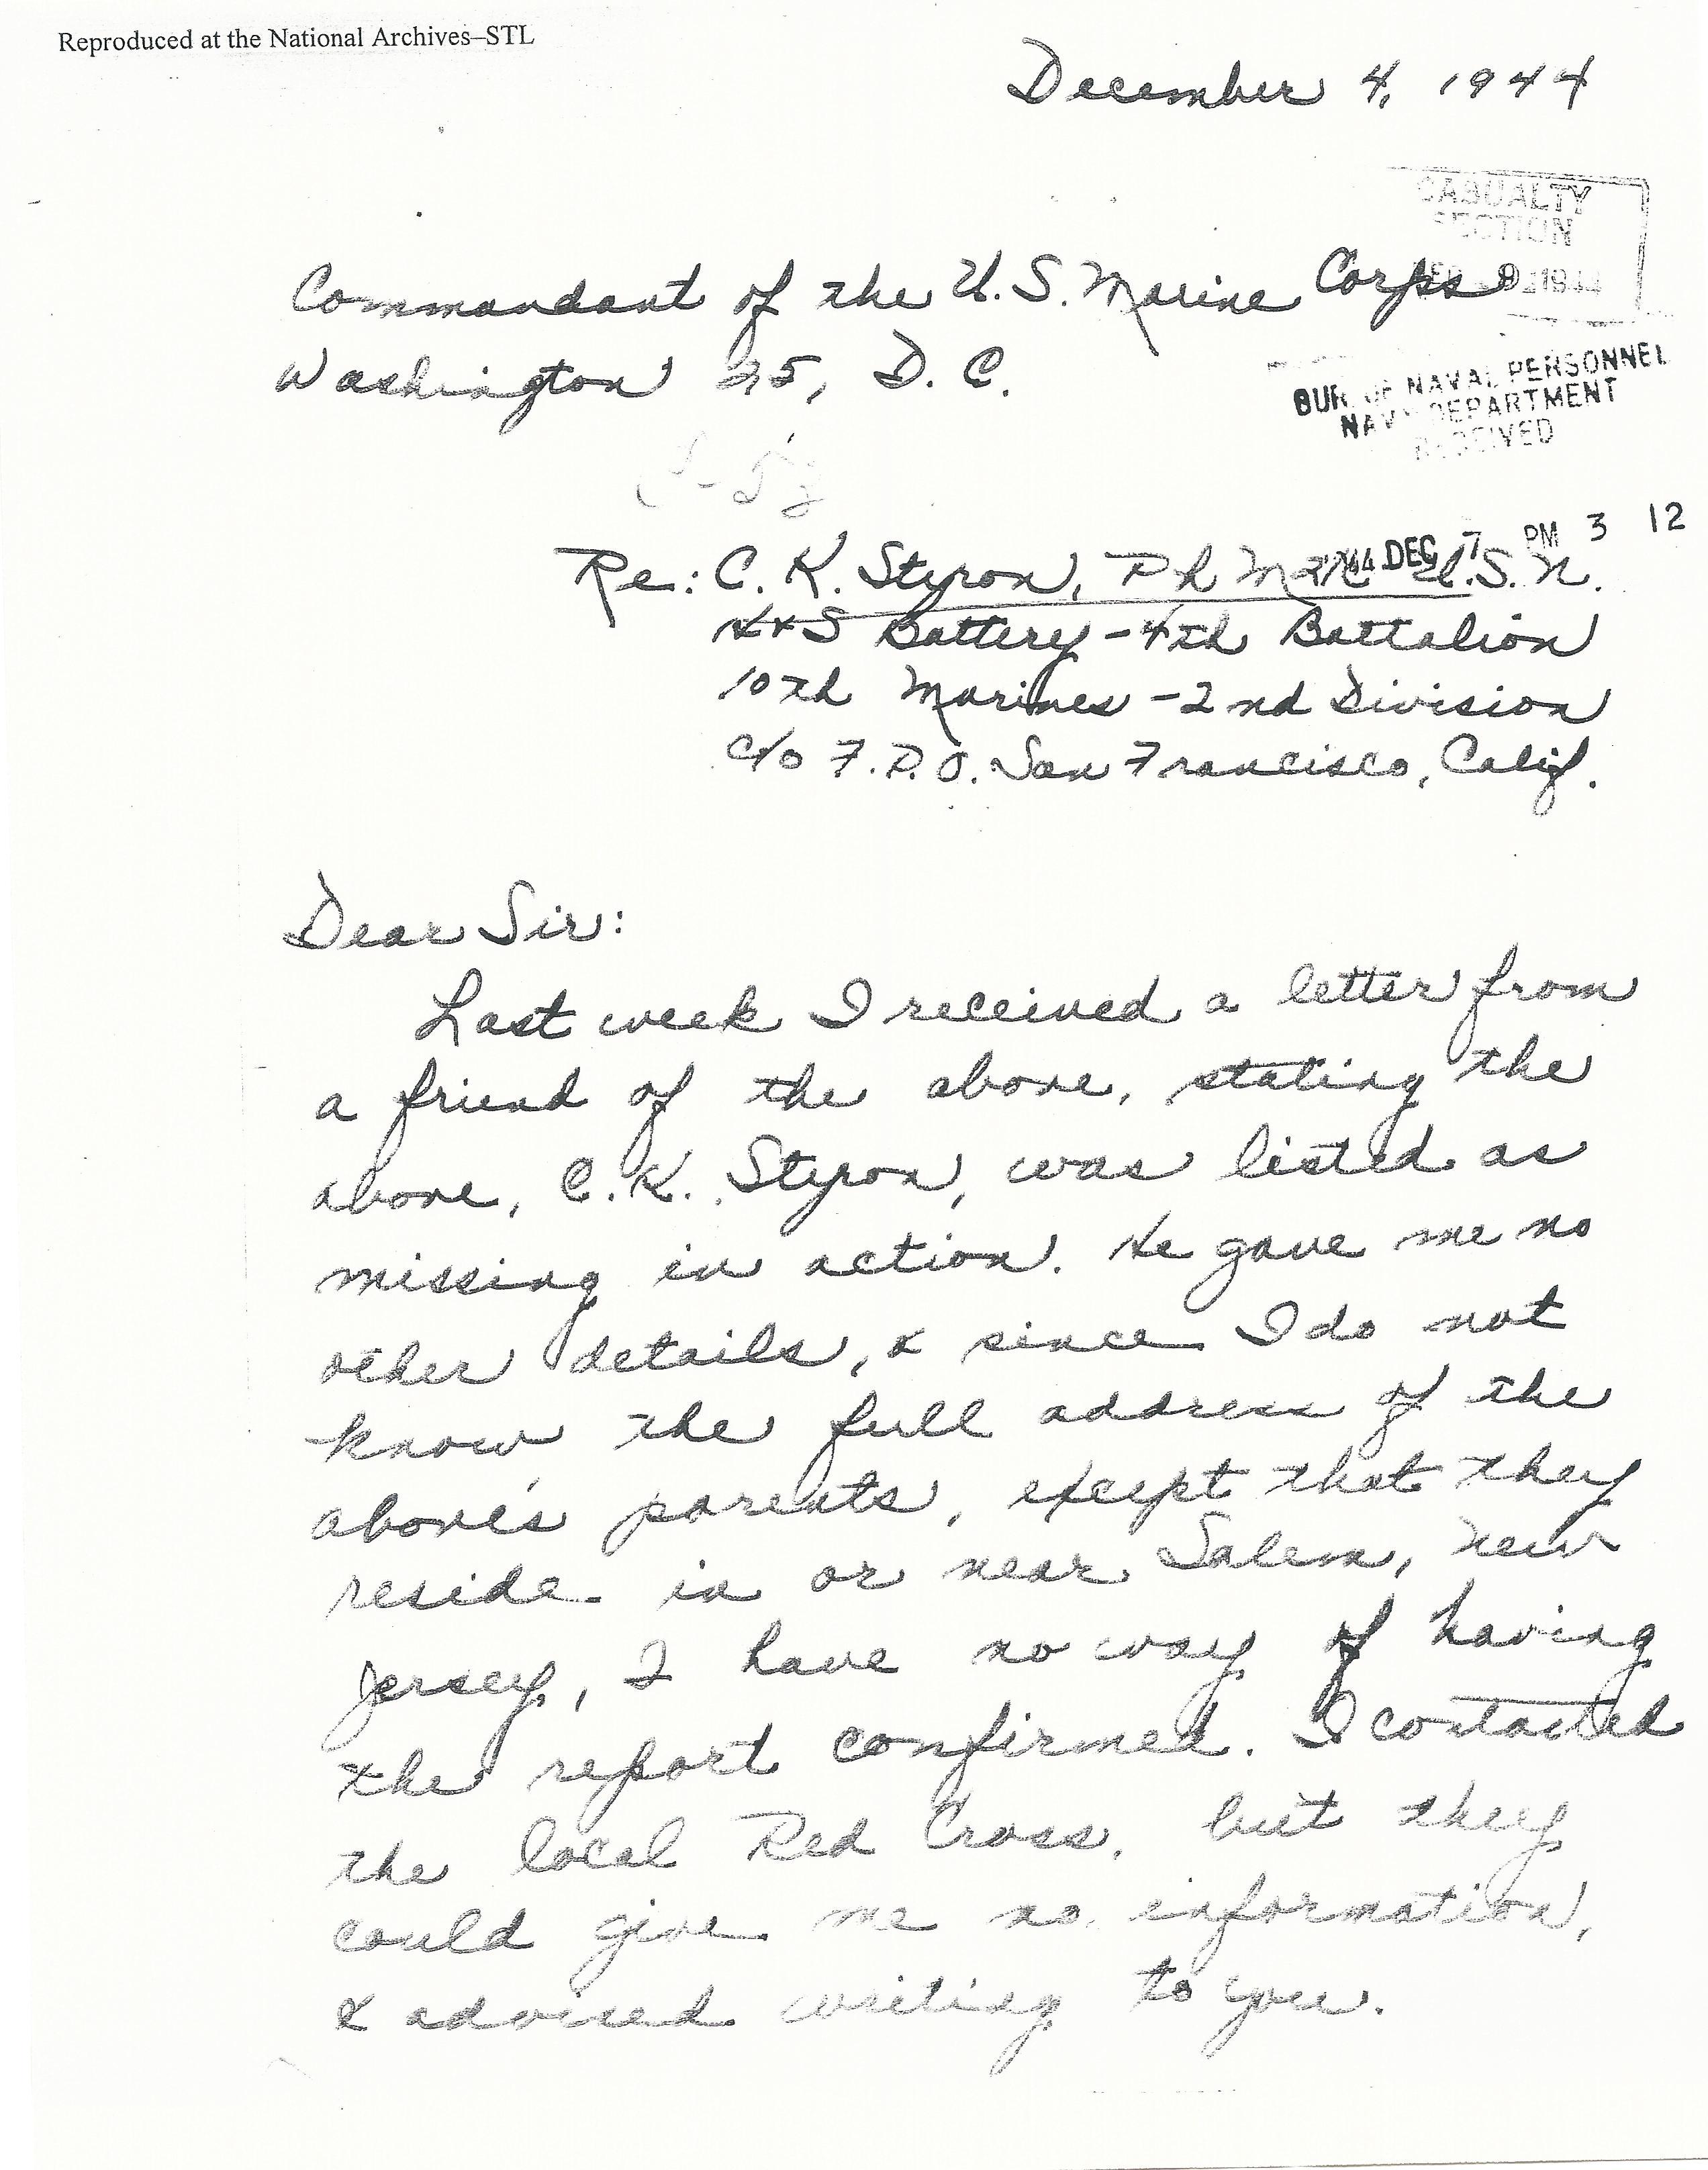 Reproduced at the National Archives–STL
December 4, 1944
CASUALTY
SECTION
1944
Commandant of the U.S. Marine Corps
Washington 25, D. C.
BUR OF NAVAL PERSONNEL
NAVY DEPARTMENT
RECEIVED
DEC 7 PM 3 12
Re: C. K. Styron, Ph M U.S.N.
H & S Battery - 4th Battalion
10th Marines - 2nd Division
c/o F.P.O. San Francisco, Calif.
Dear Sir:
Last week I received a letter from
a friend of the above, stating the
above, C. K. Styron, was listed as
missing in action. He gave me no
other details, & since I do not
know the full address of the
above's parents, except that they
reside in or near Salem, New
Jersey, I have no way of having
the report confirmed. I contacted
the local Red Cross, but they
could give me no information,
& advised writing to you.